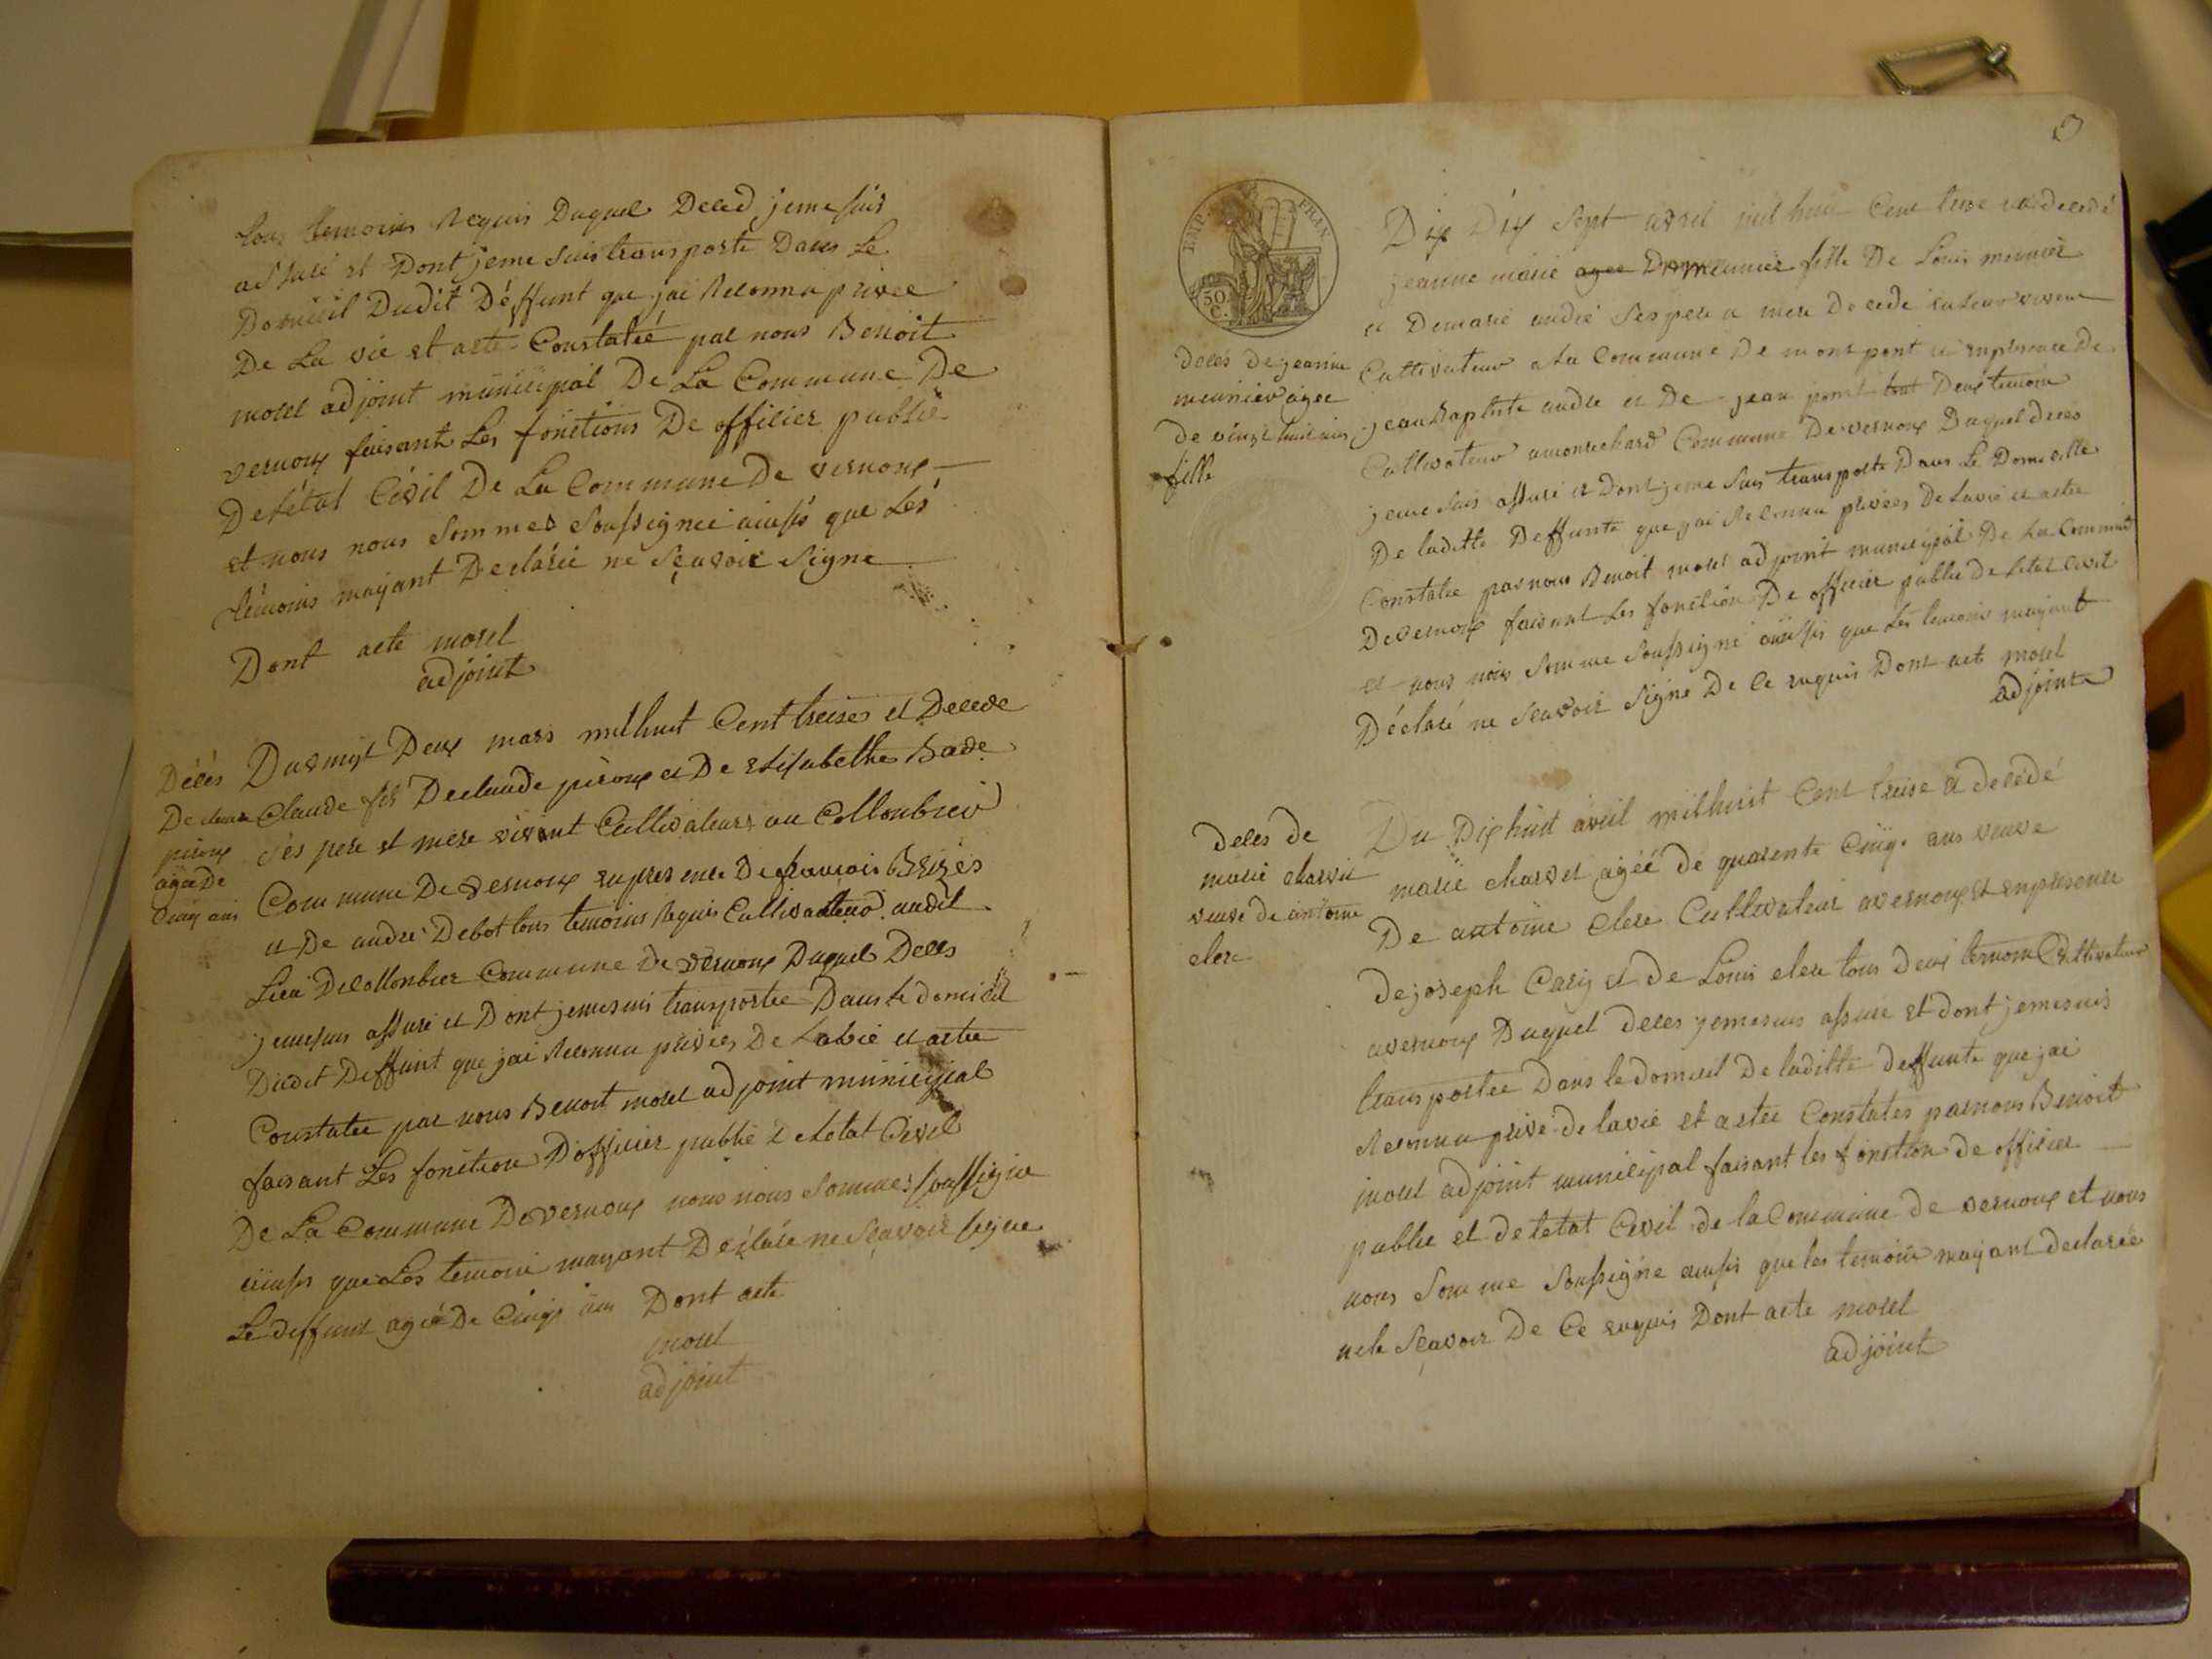 tous temoins Requis Duquel Deced jeme suis
assuré et Dont jeme suis transporte Dans Le
Domicil Dudit Déffunt que jai Reconnu privee
De La vie et acté Constateé par nous Benoit
morel adjoint municipal De La Commune De
vernoux faisant Les fonctions De officier public
De létat Cévil De La Commune De vernoux
et nous nous sommes soussignée ainsis que Les
témoins mayant Declárée ne Sçavoir Signe
Dont acte morel
adjoint
Décés
De claude
piroux
agée De
Cinq ans
Du vingt Deux mars mil huit Cent treise et Decede
Claude fils De claude piroux et De elisabethe Bade
sés pere et mere vivant Cultivateurs au Collonbier
Commune De vernoux en presence De francois
et De andre Debot tous temoins Requis Cultivateur audit
Lieu De Collonbier Commune De vernoux Duquel Deces
jemesuis assuré et Dont jemesuis transportee Dans le domicil
Dudit Deffunt que jai Reconnu privées De Lavie et actee
Constatee par nous Benoit morel adjoint municipal
faisant Les fonction D'officier public De letat Civil
De La Commune De vernoux nous nous sommes soussignee
ainsis que Les temoin mayant Declare ne Sçavoir signe
Le deffunt agée De Cinq ans Dont acte
morel
adjoint
EMP. FRAN.
50
C.
deces de jeanne
meunier agee
de vingt huit ans
fille
Dix Dix Sept avril mil huit Cent treise decedé
jeanne marie agee meunier fille De Louis meunier
et De marie andré ses pere et mere Decede vivent
Cultivateur a La Commune De montpont en presence De
jean Baptiste andre et De jean tout Deux temoin
Cultivateur a montrichard Commune De vernoux Duquel deces
jeme suis assuré et Dont jeme suis transporte Dans Le Domicille
De laditte Deffunte que jai Reconnu privées De Lavie et actee
Constatee par nous Benoit morel adjoint municipal De La Commune
De vernoux faisant Les fonction De officier public De letat Civil
et nous nous somme soussigné ainsis que Les temoin mayant
Déclaré ne Scavoir Signe De Ce requis Dont act morel
adjoint
deces de
marie charvet
veuve de antoine
clere
Du Dix huit avril mil huit Cent treise a decédé
marie charvet agéé de quarente Cinq ans veuve
De antoine clere Cultivateur a vernoux et en presence
De joseph Cary et de Louis clere tous deux temoin Cultivateur
a vernoux Duquel deces jemesuis assure et dont jemesuis
transportee Dans le domicil De laditte deffunte que jai
Reconnu privé de lavie et actee Constatés par nous Benoit
morel adjoint municipal faisant les fonction de officier
public et de letat Civil de la Commune de vernoux et nous
nous somme soussigné ainsis que les temoin mayant declarée
nele Sçavoir De Ce requis Dont acte morel
adjoint